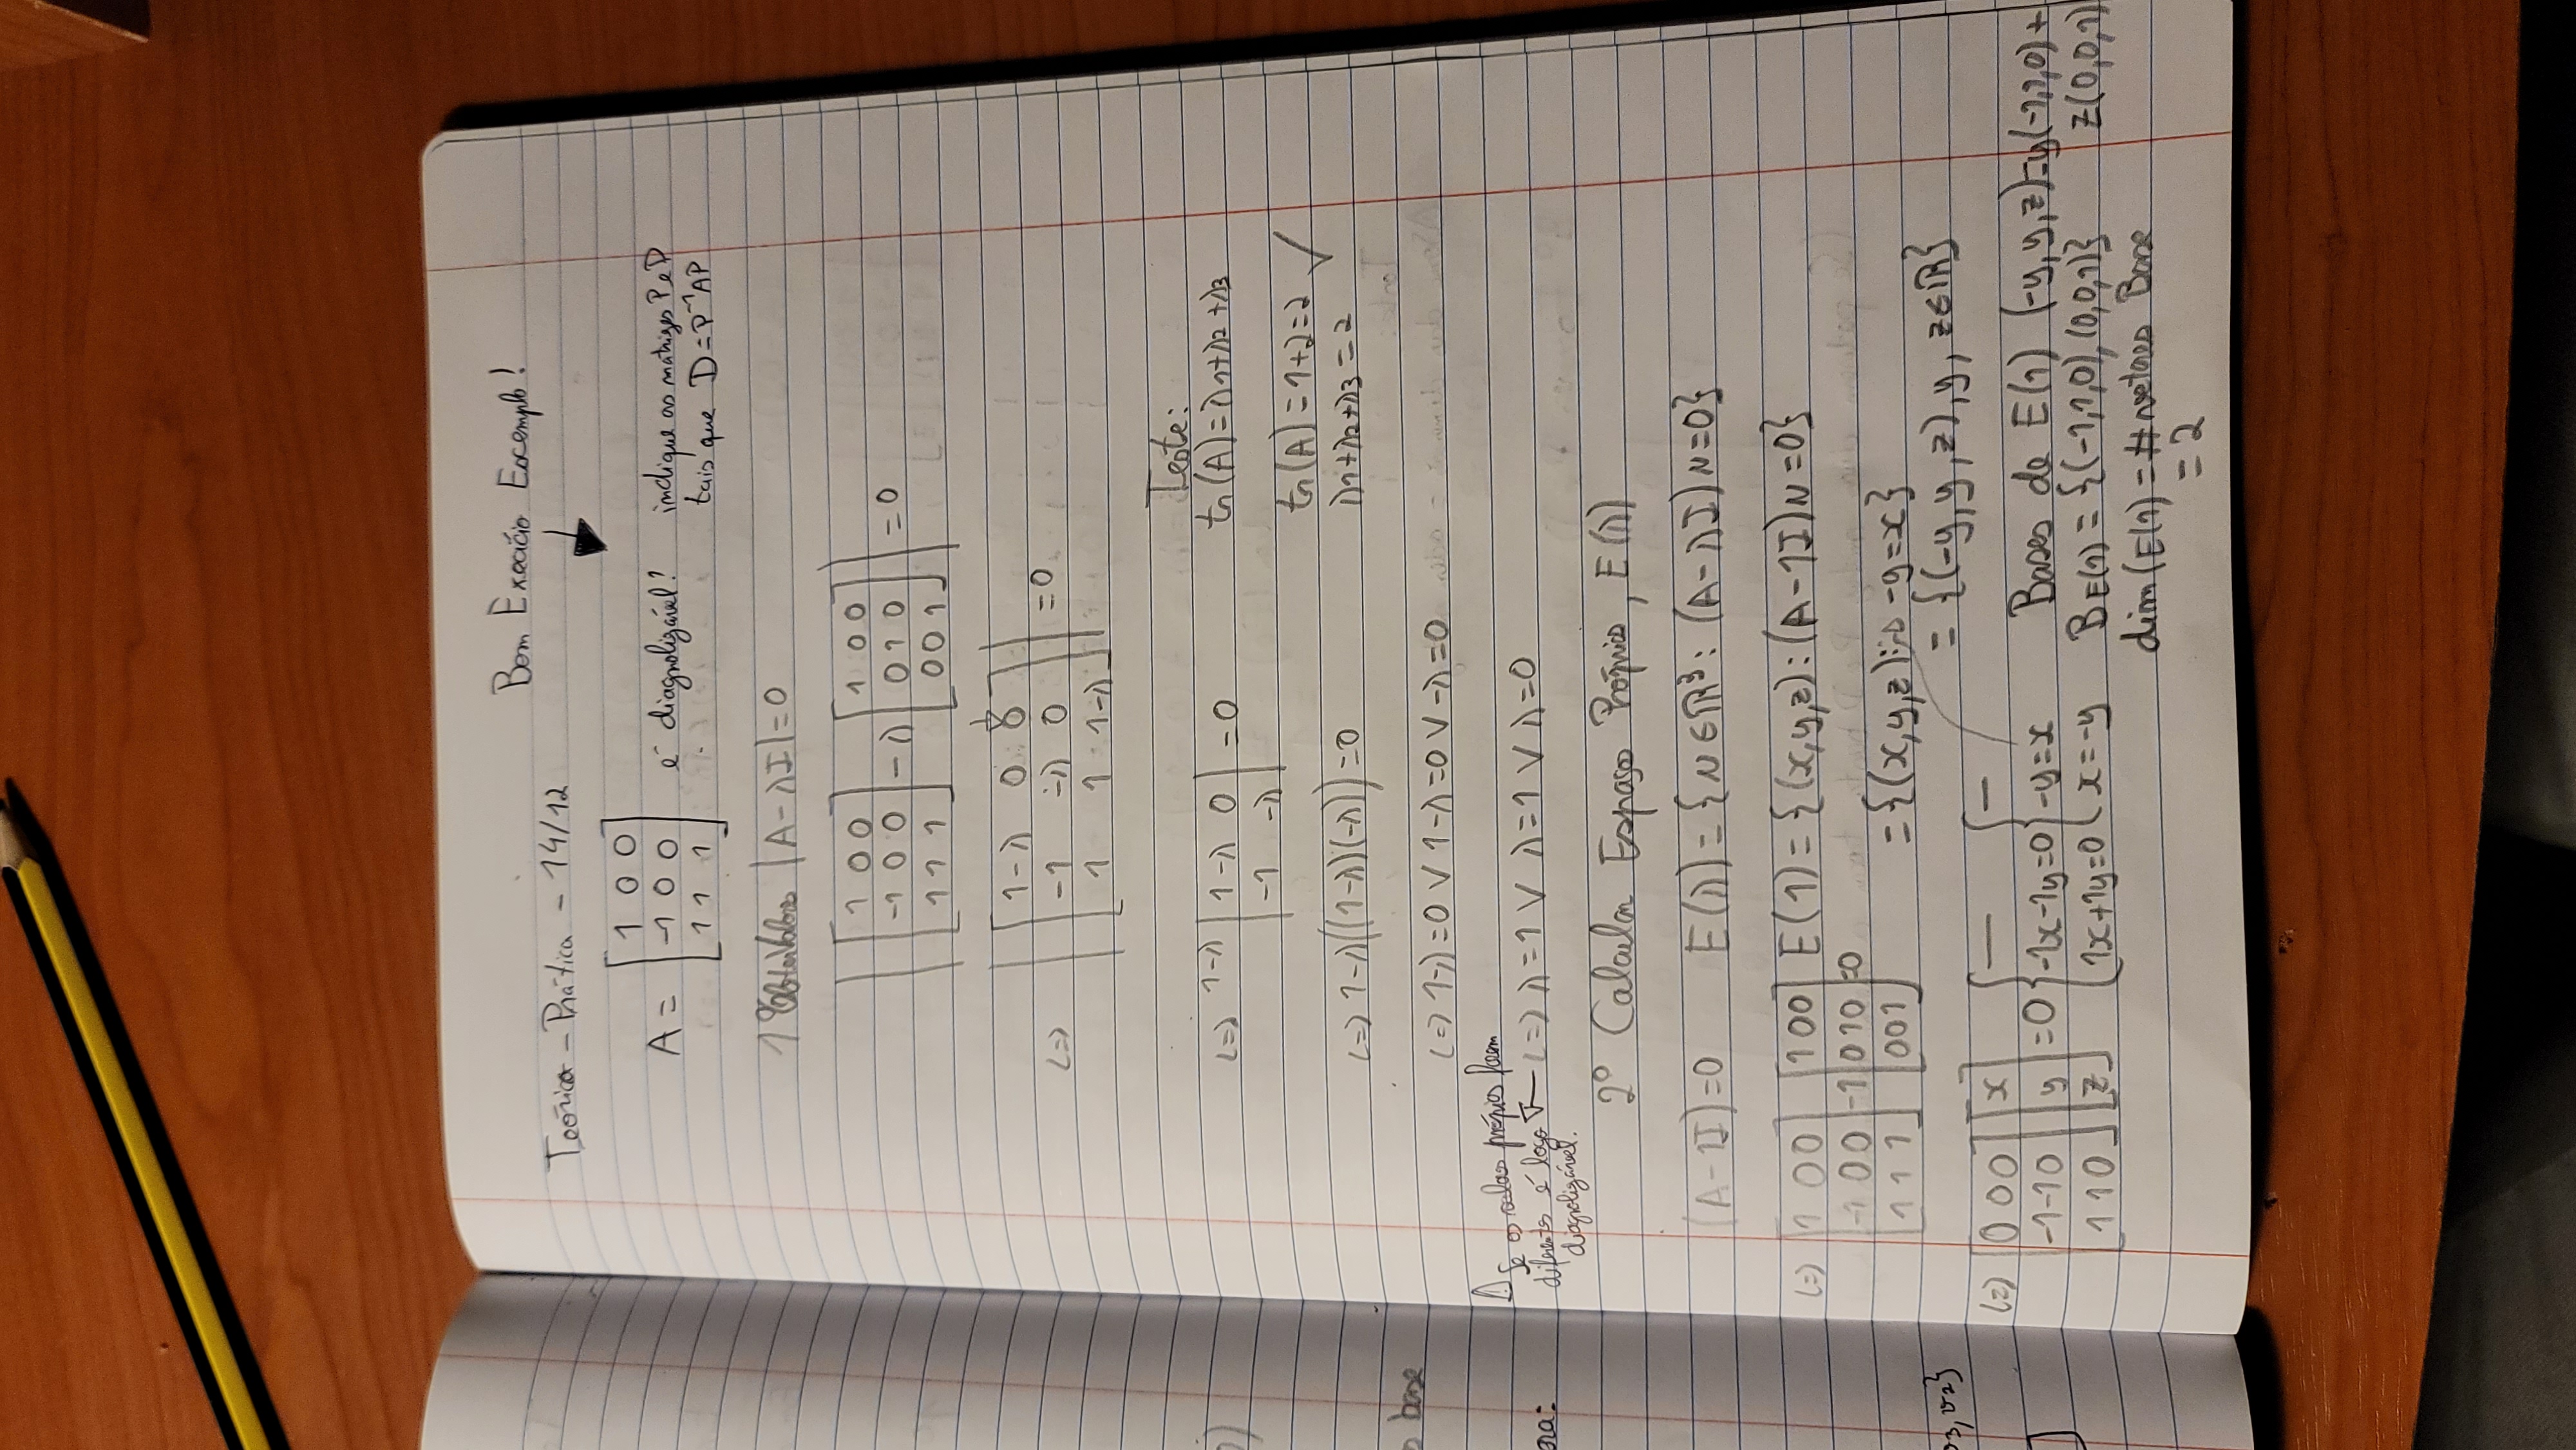 Bom Execício Excemplo!
Teórico - Prática - 14/12
A = [1 0 0; -1 0 0; 1 1 1] é diagnolizável? indique as matrizes P e D
tais que D=P⁻¹AP
1º |A-λI|=0
|[1 0 0; -1 0 0; 1 1 1] - λ [1 0 0; 0 1 0; 0 0 1]| = 0
(=) |[1-λ 0 0; -1 -λ 0; 1 1 1-λ]| = 0
Teste:
(=) 1-λ |1-λ 0; -1 -λ| = 0
tr(A)=λ1+λ2+λ3
tr(A)=1+2=2 ✓
(=) 1-λ((1-λ)(-λ))=0
λ1+λ2+λ3=2
(=) 1-λ=0 ∨ 1-λ=0 ∨ -λ=0
⚠ Se os valores próprios forem
diferentes é logo
diagnolizável.
(=) λ=1 ∨ λ=1 ∨ λ=0
2º Calcular Espaço Próprio, E(λ)
(A-1I)=0 E(λ)={v∈ℝ³: (A-λI)v=0}
(=) [1 0 0; -1 0 0; 1 1 1] -1 [1 0 0; 0 1 0; 0 0 1] =0
E(1)={(x,y,z):(A-1I)v=0}
={(x,y,z): -y=x}
={(-y,y,z),y,z∈ℝ}
(=) [0 0 0; -1 -1 0; 1 1 0] [x; y; z] =0 {— ; -1x-1y=0 ; 1x+1y=0 {— ; -y=x ; x=-y
Bases de E(1) (-y,y,z)=y(-1,1,0)+
z(0,0,1)
B E(1) = {(-1,1,0),(0,0,1)}
dim(E(1)=# vetores Base
=2
base
ora:
3,v2}